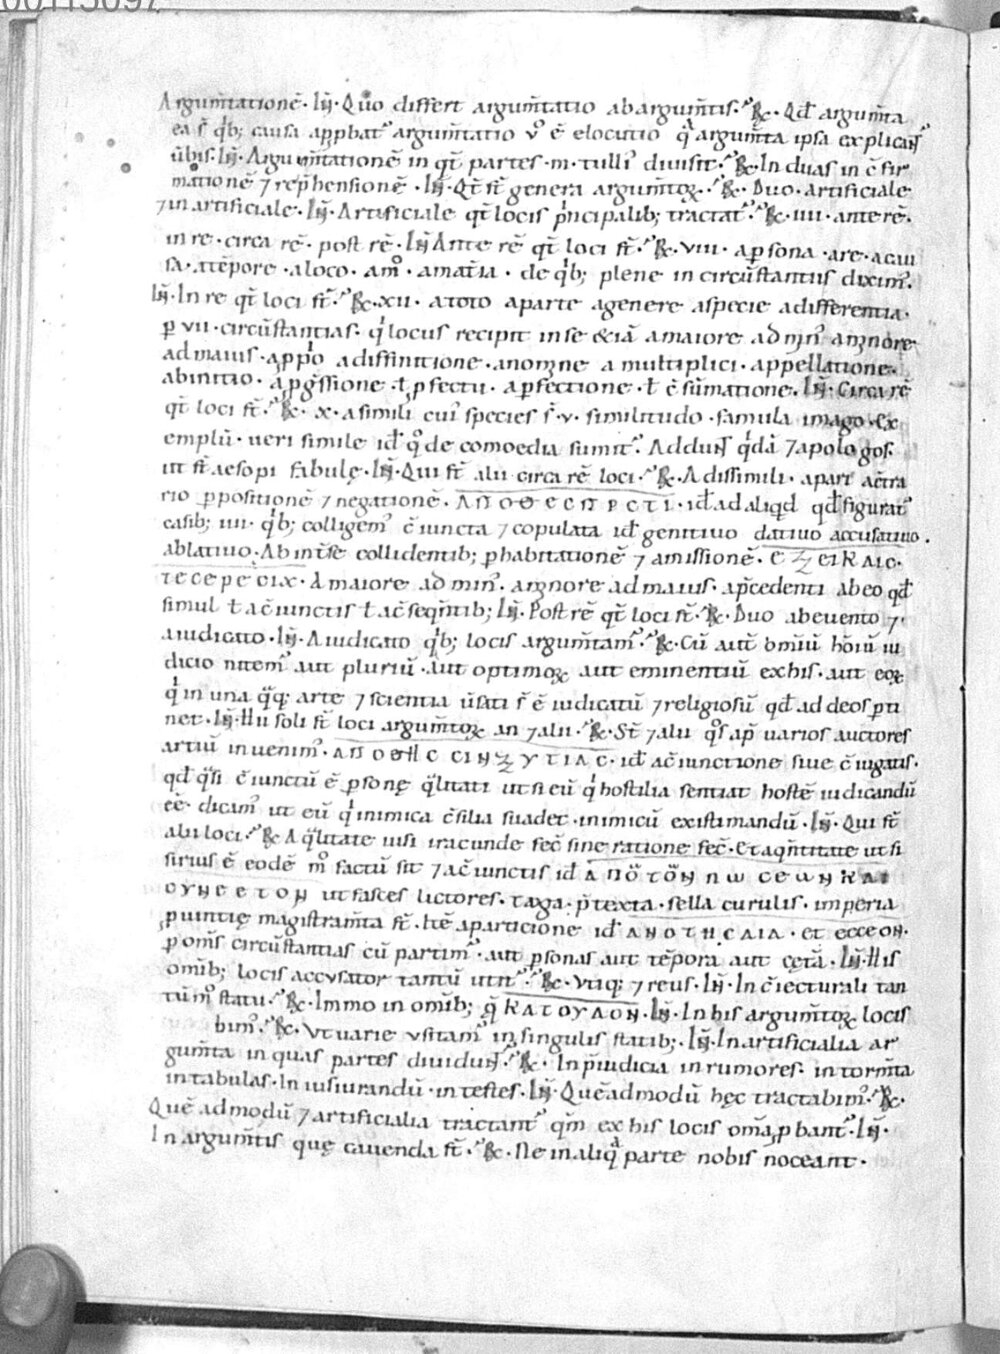 00113097
Argum̄tationē · Iñ · Quo differt argum̄tatio ab argum̄tis · R̄ · Qđ argum̄ta
ea s̄ qͥb; causa app̱batˀ argum̄tatio v̊ ē elocutio qͣ argum̄ta ipsa explicant
ūbis · Iñ · Argum̄tationē in qt̄ partes · m · tulliˀ diuisit · R̄ · In duas in c̄fir
mationē ⁊ rep̄hensionē · Iñ · Qt̄ st̄ genera argum̄toꝝ · R̄ · Duo · artificiale
⁊ inartificiale · Iñ · Artificiale qt̄ locis pͥncipalib; tractatˀ · R̄ · IIII · ante rē ·
in re · circa rē · post rē · Iñ Ante rē qt̄ loci st̄ · R̄ · VIII · a ꝑsona · a re · a cau
sa · a tēpore · a loco · a m̊ · a mat̄ia · de qͥb; plene in circūstantiis diximˀ ·
Iñ · In re qt̄ loci st̄ · R̄ · XII · a toto a parte a genere a specie a differentia ·
ꝑ VII · circūstantias · qͥ locus recipit in se & iā a maiore ad minˀ a minore
ad maius · a pp̱o a diffinitione · a nomine a multiplici · appellatione ·
ab initio · a p̱gressione ł p̱fectu · a ꝑfectione · ł c̄sūmatione · Iñ · Circa rē
qt̄ loci st̄ · R̄ · X · a simili cuiˀ species s̄ · V · similitudo · famula imago · ex
emplū · ueri simile id̄ q̊ de comoedia sumitˀ · Addunt qͥdā ⁊ apologos ·
ut st̄ aesopi fabulę · Iñ · Qui st̄ alii circa rē loci · R̄ · A dissimili · a pari a c̄tra
rio ꝑ positionē ⁊ negationē · ΑΠΟΘΕϹΠΡϹΤΙ · id̄ ad aliqđ qđ figuratˀ
casib; IIII · qͥb; colligemˀ c̄iuncta ⁊ copulata id̄ genitiuo datiuo accusatiuo ·
ablatiuo · Ab int̄ se collidentib; ꝑ habitationē ⁊ amissionē · ЄΞЄΙΚΛΙϹ ·
ΤЄϹЄΡЄϹΙΧ · A maiore ad minˀ · a minore ad maius · a p̄cedenti ab eo qđ
simul ł ac̄iunctis ł ac̄seqn̄tib; Iñ · Post rē qt̄ loci st̄ · R̄ · Duo ab euento ⁊
a iudicato · Iñ · A iudicato qͥb; locis argum̄tamˀ · R̄ · Cū aut̄ omīū hōiū iu
dicio nitemˀ aut pluriū · aut optimoꝝ aut eminentiū ex his · aut eoꝝ
qͥ in una qͣq; arte ⁊ scientia ūsati s̄ ē iudicatū ⁊ religiosū qđ ad deos ꝑti
net · Iñ · Hii soli st̄ loci argum̄toꝝ an ⁊ alii · R̄ · St̄ ⁊ alii q̊s ap̄ uarios auctores
artiū inuenimˀ · ΑΠΟΘΗϹ ϹΙΗΖΥΤΙΑϹ · id̄ ac̄iunctione siue c̄iugatis ·
qđ qͣsi c̄iunctū ē ꝑsonę qͣlitati ut si eū qͥ hostilia sentiat hostē iudicandū
ēē · dicamˀ ut eū qͥ inimica c̄silia suadet · inimicū existimandū · Iñ · Qui st̄
alii loci · R̄ A qͣlitate uisi iracunde fec̄ sine ratione fec̄ · Et a qn̄titate ut si
sirius ē eodē m̊ factū sit ⁊ ac̄iunctis id̄ ΑΠΟΤΟΗ ΠΩ ϹЄΩΗ ΚΑΙ
ΟΥΗЄЄΤΟΗ ut fasces lictores · taga · p̄texta · sella curulis · imperia
ꝓuintię magistram̄ta st̄ · Itē a particione id̄ ΑΗΟΤΗϹΔΙΑ · et ecceon ·
ꝑ om̄s circūstantias cū partimˀ · aut ꝑsonas aut tēpora aut cęt̄a · Iñ · His
omīb; locis accusator tantū utit̄ˀ · R̄ · Vtiq; ⁊ reus · Iñ · In c̄iecturali tan
tū m̊ statu · R̄ · Immo in omīb; qͣ ΚΑΤΟΥΛΟΗ · Iñ · In his argum̄toꝝ locis
bimˀ · R̄ · Vt uarie vsitamˀ in singulis statib; · Iñ · Inartificialia ar
gum̄ta in quas partes diuidunt · R̄ · In p̄iudicia in rumores · in torm̄ta
in tabulas · In iusiurandū · in testes · Iñ · Quēadmodū hęc tractabimˀ · R̄ ·
Quēadmodū ⁊ artificialia tractantˀ qm̄ ex his locis om̄a ꝓbantˀ · Iñ ·
In argum̄tis quę cauenda st̄ · R̄ · Ne in aliqͣ parte nobis noceant ·